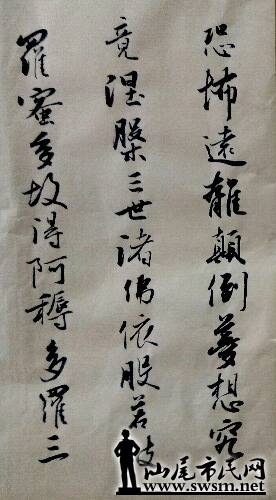 恐怖遠離顛倒夢想究
竟涅槃三世諸佛依般若
羅蜜多故得阿耨多羅三
汕尾市民网
www.swsm.net